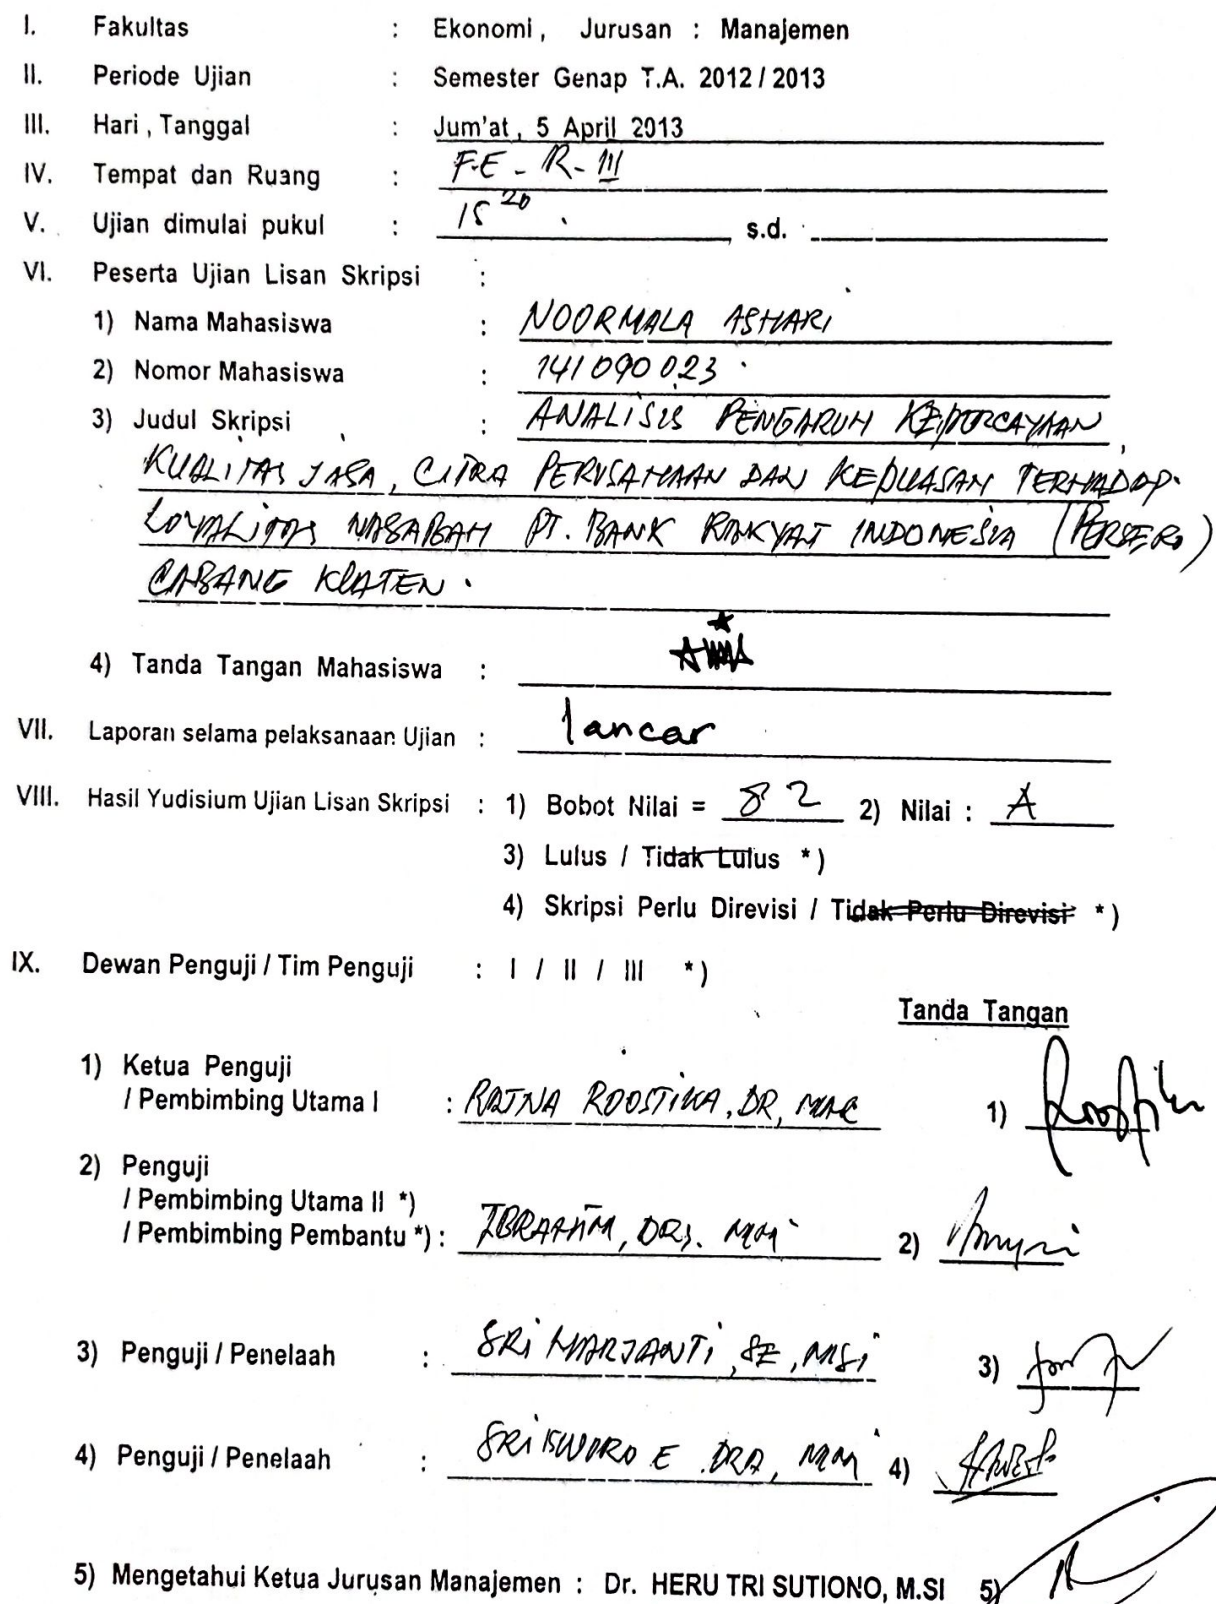 I. Fakultas : Ekonomi, Jurusan : Manajemen
II. Periode Ujian : Semester Genap T.A. 2012 / 2013
III. Hari, Tanggal : Jum'at, 5 April 2013
IV. Tempat dan Ruang : F.E - R - III
V. Ujian dimulai pukul : 15 20 . s.d.
VI. Peserta Ujian Lisan Skripsi :
1) Nama Mahasiswa : NOORMALA ASHARI
2) Nomor Mahasiswa : 141090023
3) Judul Skripsi : ANALISIS PENGARUH KEPERCAYAAN,
KUALITAS JASA, CITRA PERUSAHAAN DAN KEPUASAN TERHADAP
LOYALITAS NASABAH PT. BANK RAKYAT INDONESIA (PERSERO)
CABANG KLATEN.
4) Tanda Tangan Mahasiswa :
VII. Laporan selama pelaksanaan Ujian : lancar
VIII. Hasil Yudisium Ujian Lisan Skripsi : 1) Bobot Nilai = 82 2) Nilai : A
3) Lulus / Tidak Lulus *)
4) Skripsi Perlu Direvisi / Tidak Perlu Direvisi *)
IX. Dewan Penguji / Tim Penguji : I / II / III *)
Tanda Tangan
1) Ketua Penguji
/ Pembimbing Utama I : RATNA ROOSTIKA, DR, MAC 1)
2) Penguji
/ Pembimbing Utama II *)
/ Pembimbing Pembantu *) : IBRAHIM, DRS. MM 2)
3) Penguji / Penelaah : SRI HARJANTI, SE, MSi 3)
4) Penguji / Penelaah : SRI E DRA, MM 4)
5) Mengetahui Ketua Jurusan Manajemen : Dr. HERU TRI SUTIONO, M.SI 5)